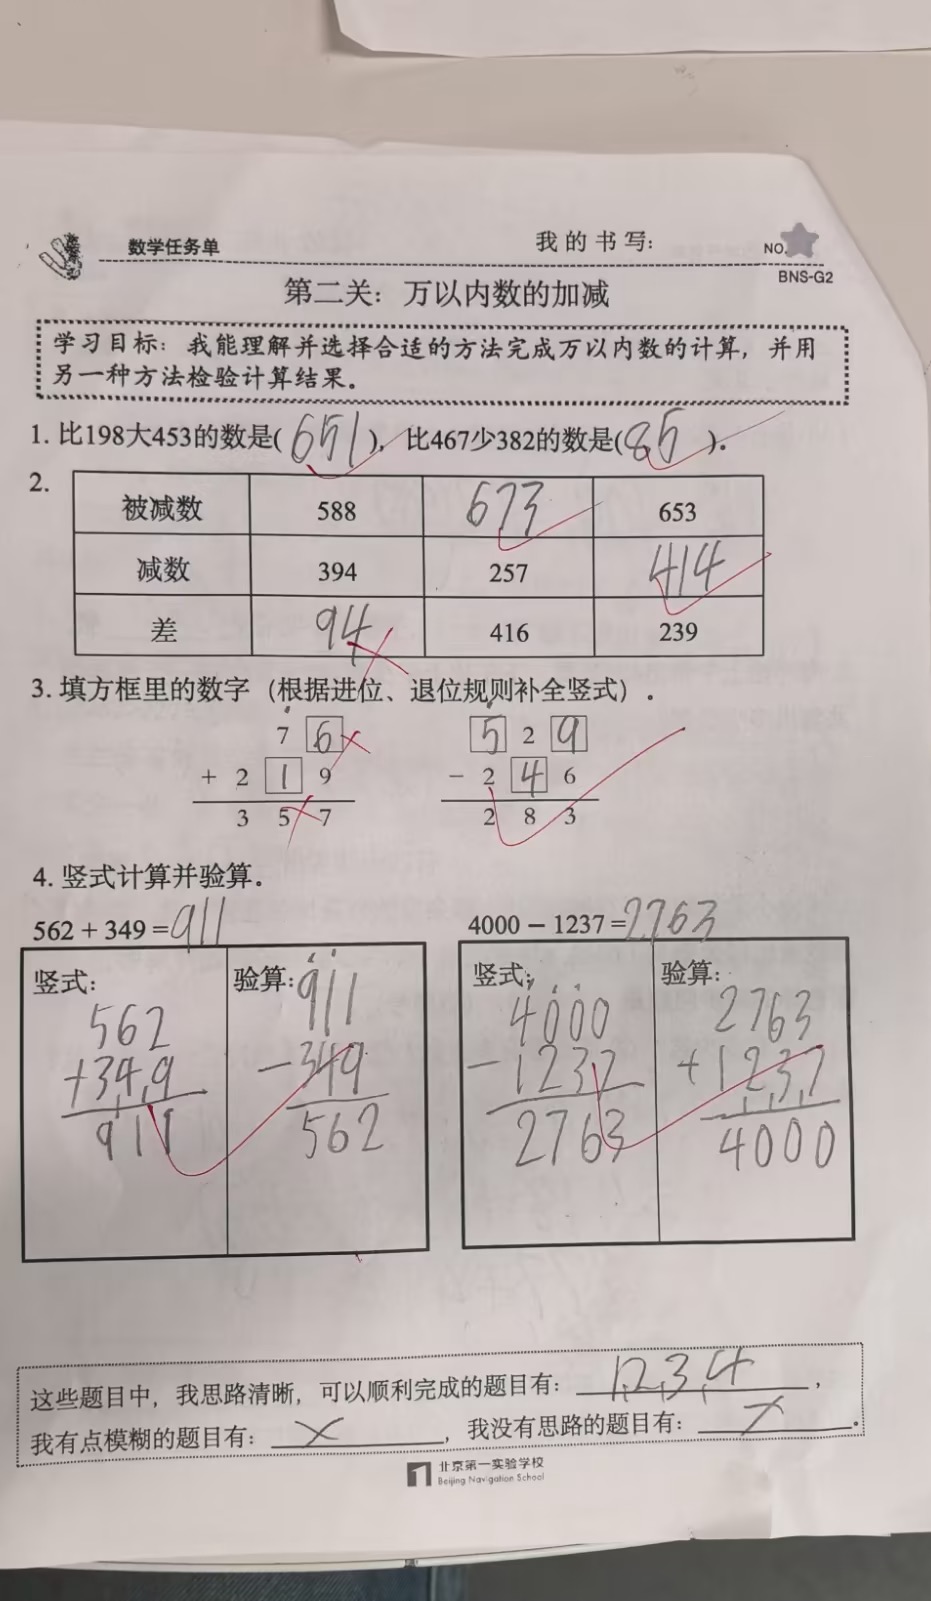 数学任务单 我的书写: NO.
BNS-G2
第二关：万以内数的加减
学习目标：我能理解并选择合适的方法完成万以内数的计算，并用
另一种方法检验计算结果。
1. 比198大453的数是( 651 )，比467少382的数是( 85 )。
2.
被减数 588 673 653
减数 394 257 414
差 94 416 239
3. 填方框里的数字（根据进位、退位规则补全竖式）.
7 6 5 2 9
+ 2 1 9 − 2 4 6
3 5 7 2 8 3
4. 竖式计算并验算。
562 + 349 = 911 4000 − 1237 = 2763
竖式： 验算： 竖式： 验算：
562 911 4000 2763
+349 −349 −1237 +1237
911 562 2763 4000
这些题目中，我思路清晰，可以顺利完成的题目有： 1,2,3,4 ，
我有点模糊的题目有： × ，我没有思路的题目有： × 。
北京第一实验学校
Beijing Navigation School